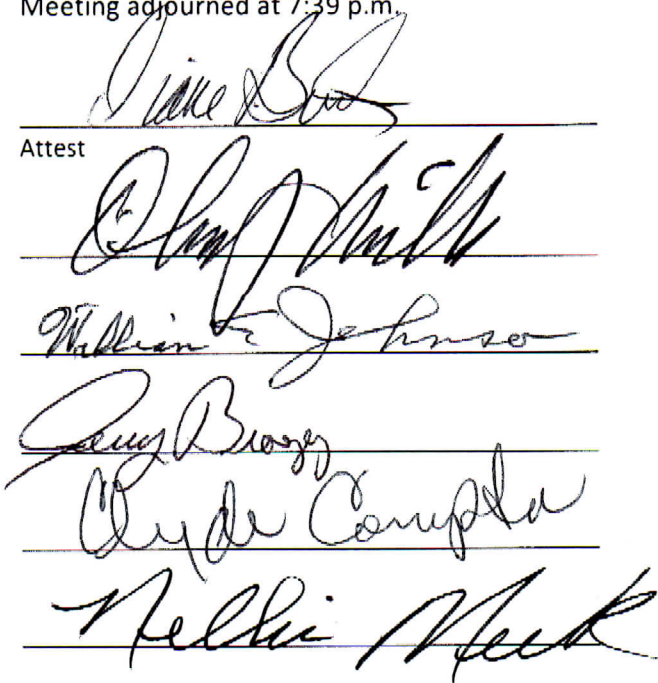 Meeting adjourned at 7:39 p.m.
Diane
Attest
William E Johnson
Jerry
Clyde Compton
Nellie Meek